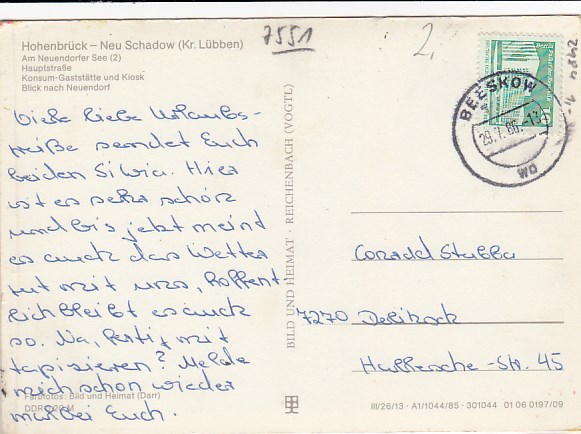 Hohenbrück – Neu Schadow (Kr. Lübben)
Am Neuendorfer See (2)
Hauptstraße
Konsum-Gaststätte und Kiosk
Blick nach Neuendorf
7551
2,
BEESKOW
29.7.86.-13
wd
Viele liebe Urlaubs-
grüße sendet Euch
beiden Silvia. Hier
ist es sehr schön
und bis jetzt meint
es auch das Wetter
gut mit uns, hoffent
lich bleibt es auch
so. Na, fertig mit
tapezieren? Melde
mich schon wieder
mal bei Euch.
Farbfotos: Bild und Heimat (Darr)
BILD UND HEIMAT · REICHENBACH (VOGTL)
7270 Delitzsch
Hallesche-Str. 45
III/26/13 · A1/1044/85 · 301044 01 06 0197/09